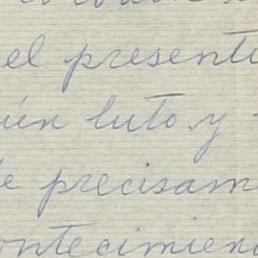 el present
ún luto y
e precisam
ontecimien